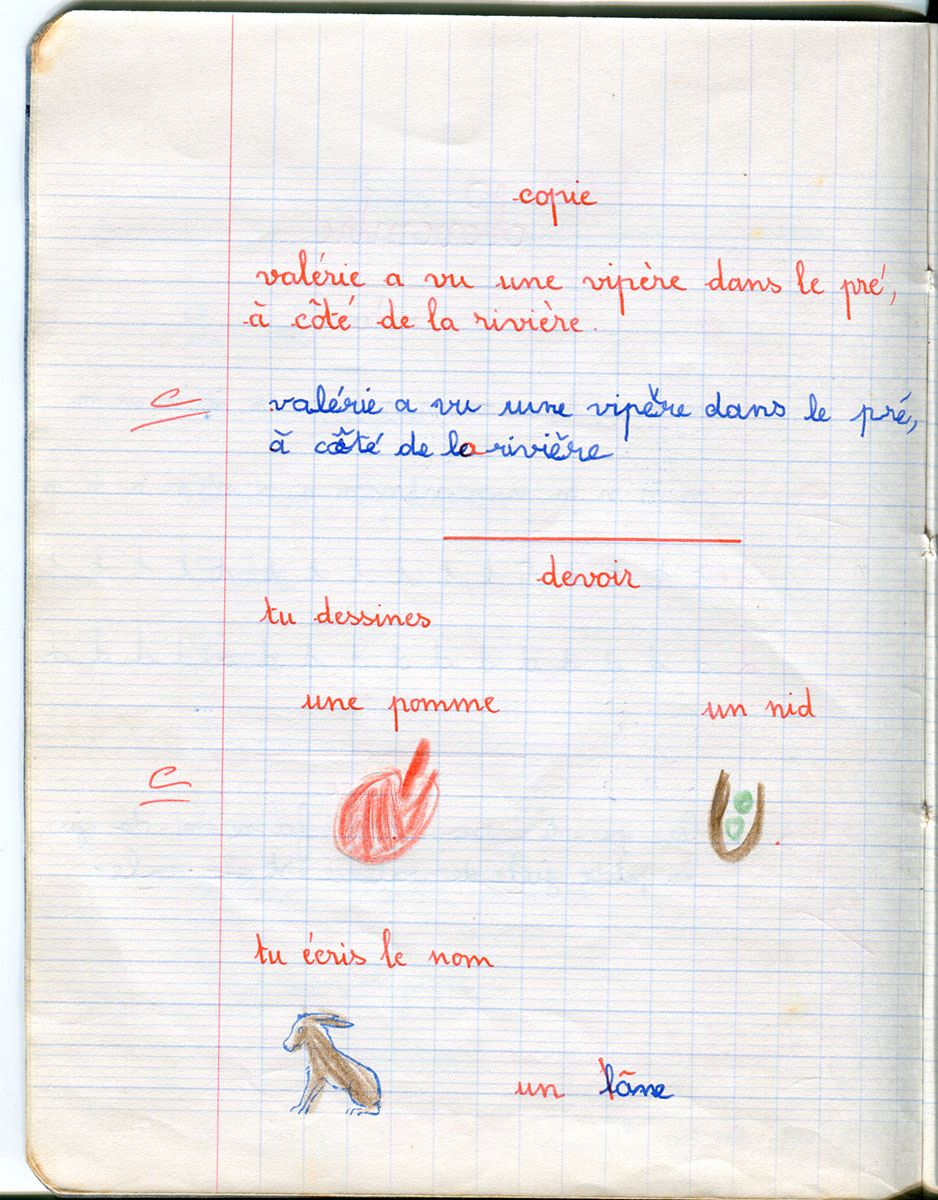 copie
valérie a vu une vipère dans le pré,
à côté de la rivière.
C valérie a vu une vipère dans le pré,
à côté de la rivière
devoir
tu dessines
une pomme un nid
C
tu écris le nom
un lâne